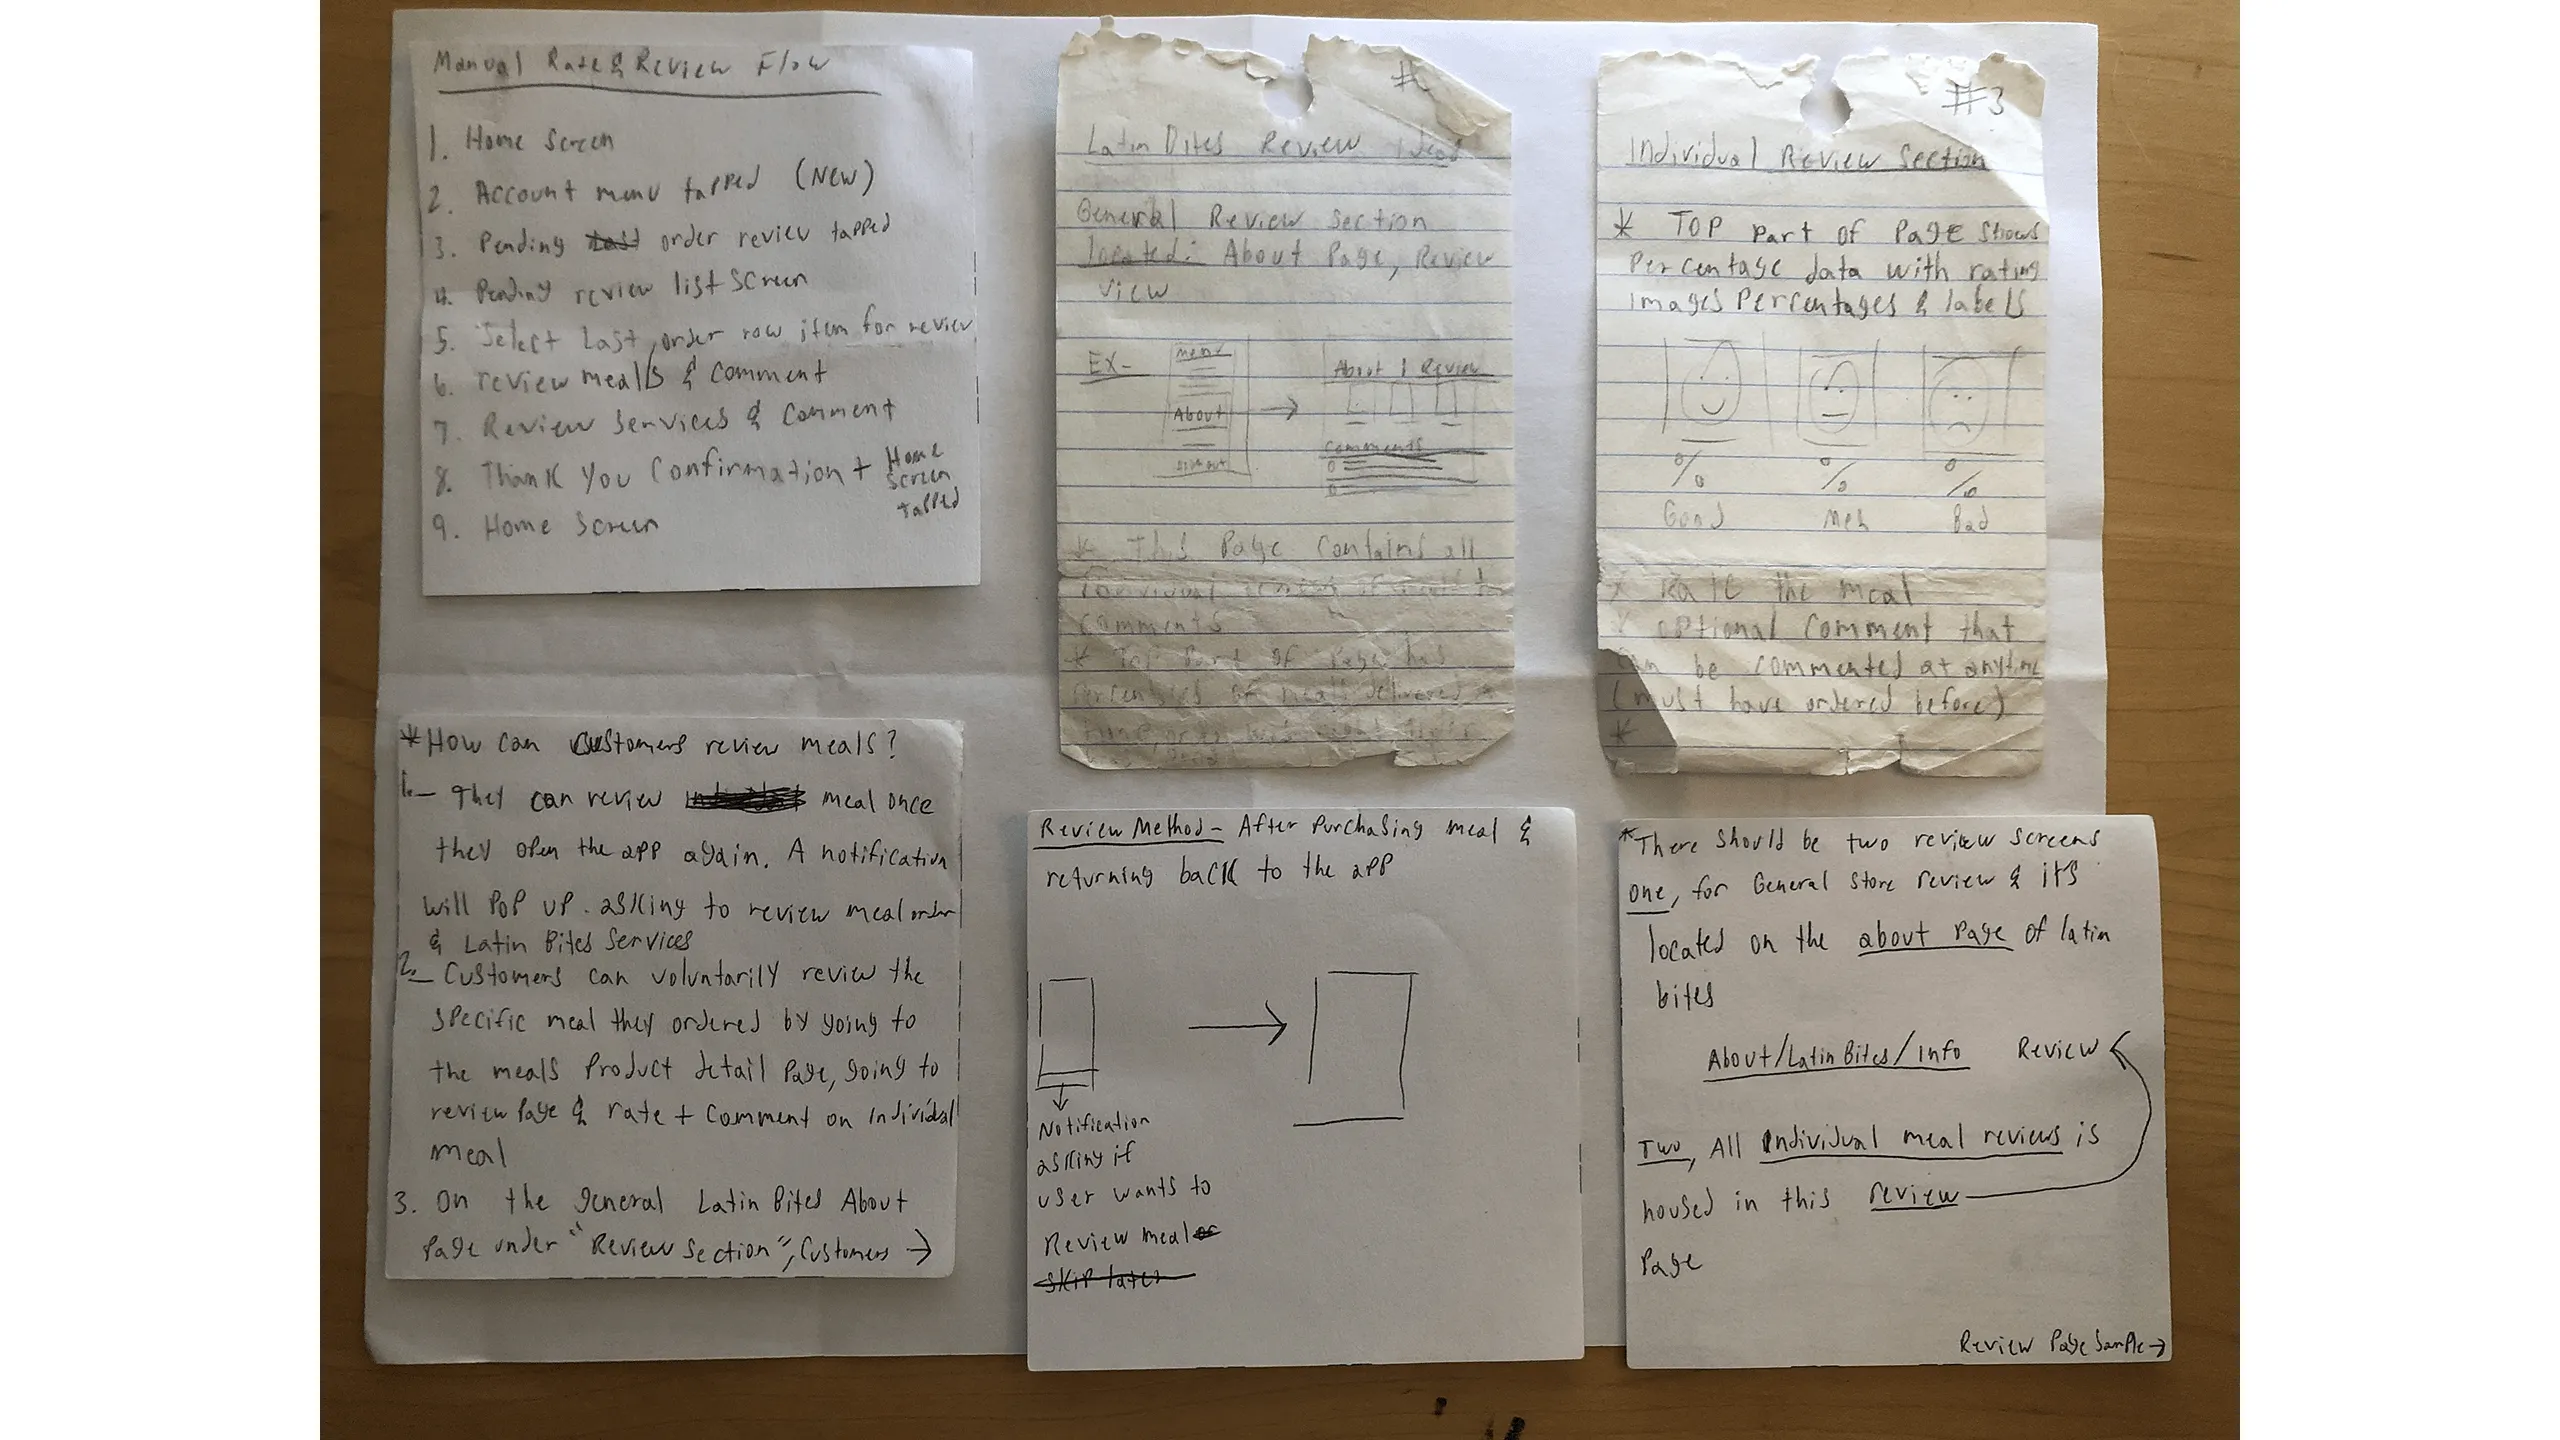 Manual Rate & Review Flow
1. Home Screen
2. Account menu tapped (New)
3. Pending order review tapped
4. Pending review list screen
5. Select last order row item for review
6. review meals & comment
7. Review services & comment
8. Thank you confirmation + Home
screen
tapped
9. Home Screen
#
Latin Bites Review Ideas
General Review Section
located: About Page, Review
View
EX-
menu
About
signout
About | Review
Comments
* This Page contains all
individual reviews of
comments
* Top Part of Page has
percentages of meals delivered
time, order was right,
#3
Individual Review Section
* TOP part of Page shows
percentage data with rating
images percentages & labels
% % %
Good Meh Bad
* Rate the meal
* optional comment that
can be commented at anytime
(must have ordered before)
*
* How can customers review meals?
1.- They can review meal once
they open the app again. A notification
will pop up. asking to review meal order
& Latin Bites Services
2.- Customers can voluntarily review the
specific meal they ordered by going to
the meals product detail page, going to
review page & rate + comment on individal
meal
3. On the general Latin Bites About
Page under "Review Section", Customers →
Review Method - After purchasing meal &
returning back to the app
Notification
asking if
user wants to
Review meal or
skip later
* There should be two review screens
one, for General store review & it's
located on the about page of latin
bites
About/Latin Bites/Info Review
Two, All individual meal reviews is
housed in this review
Page
Review Page Sample →